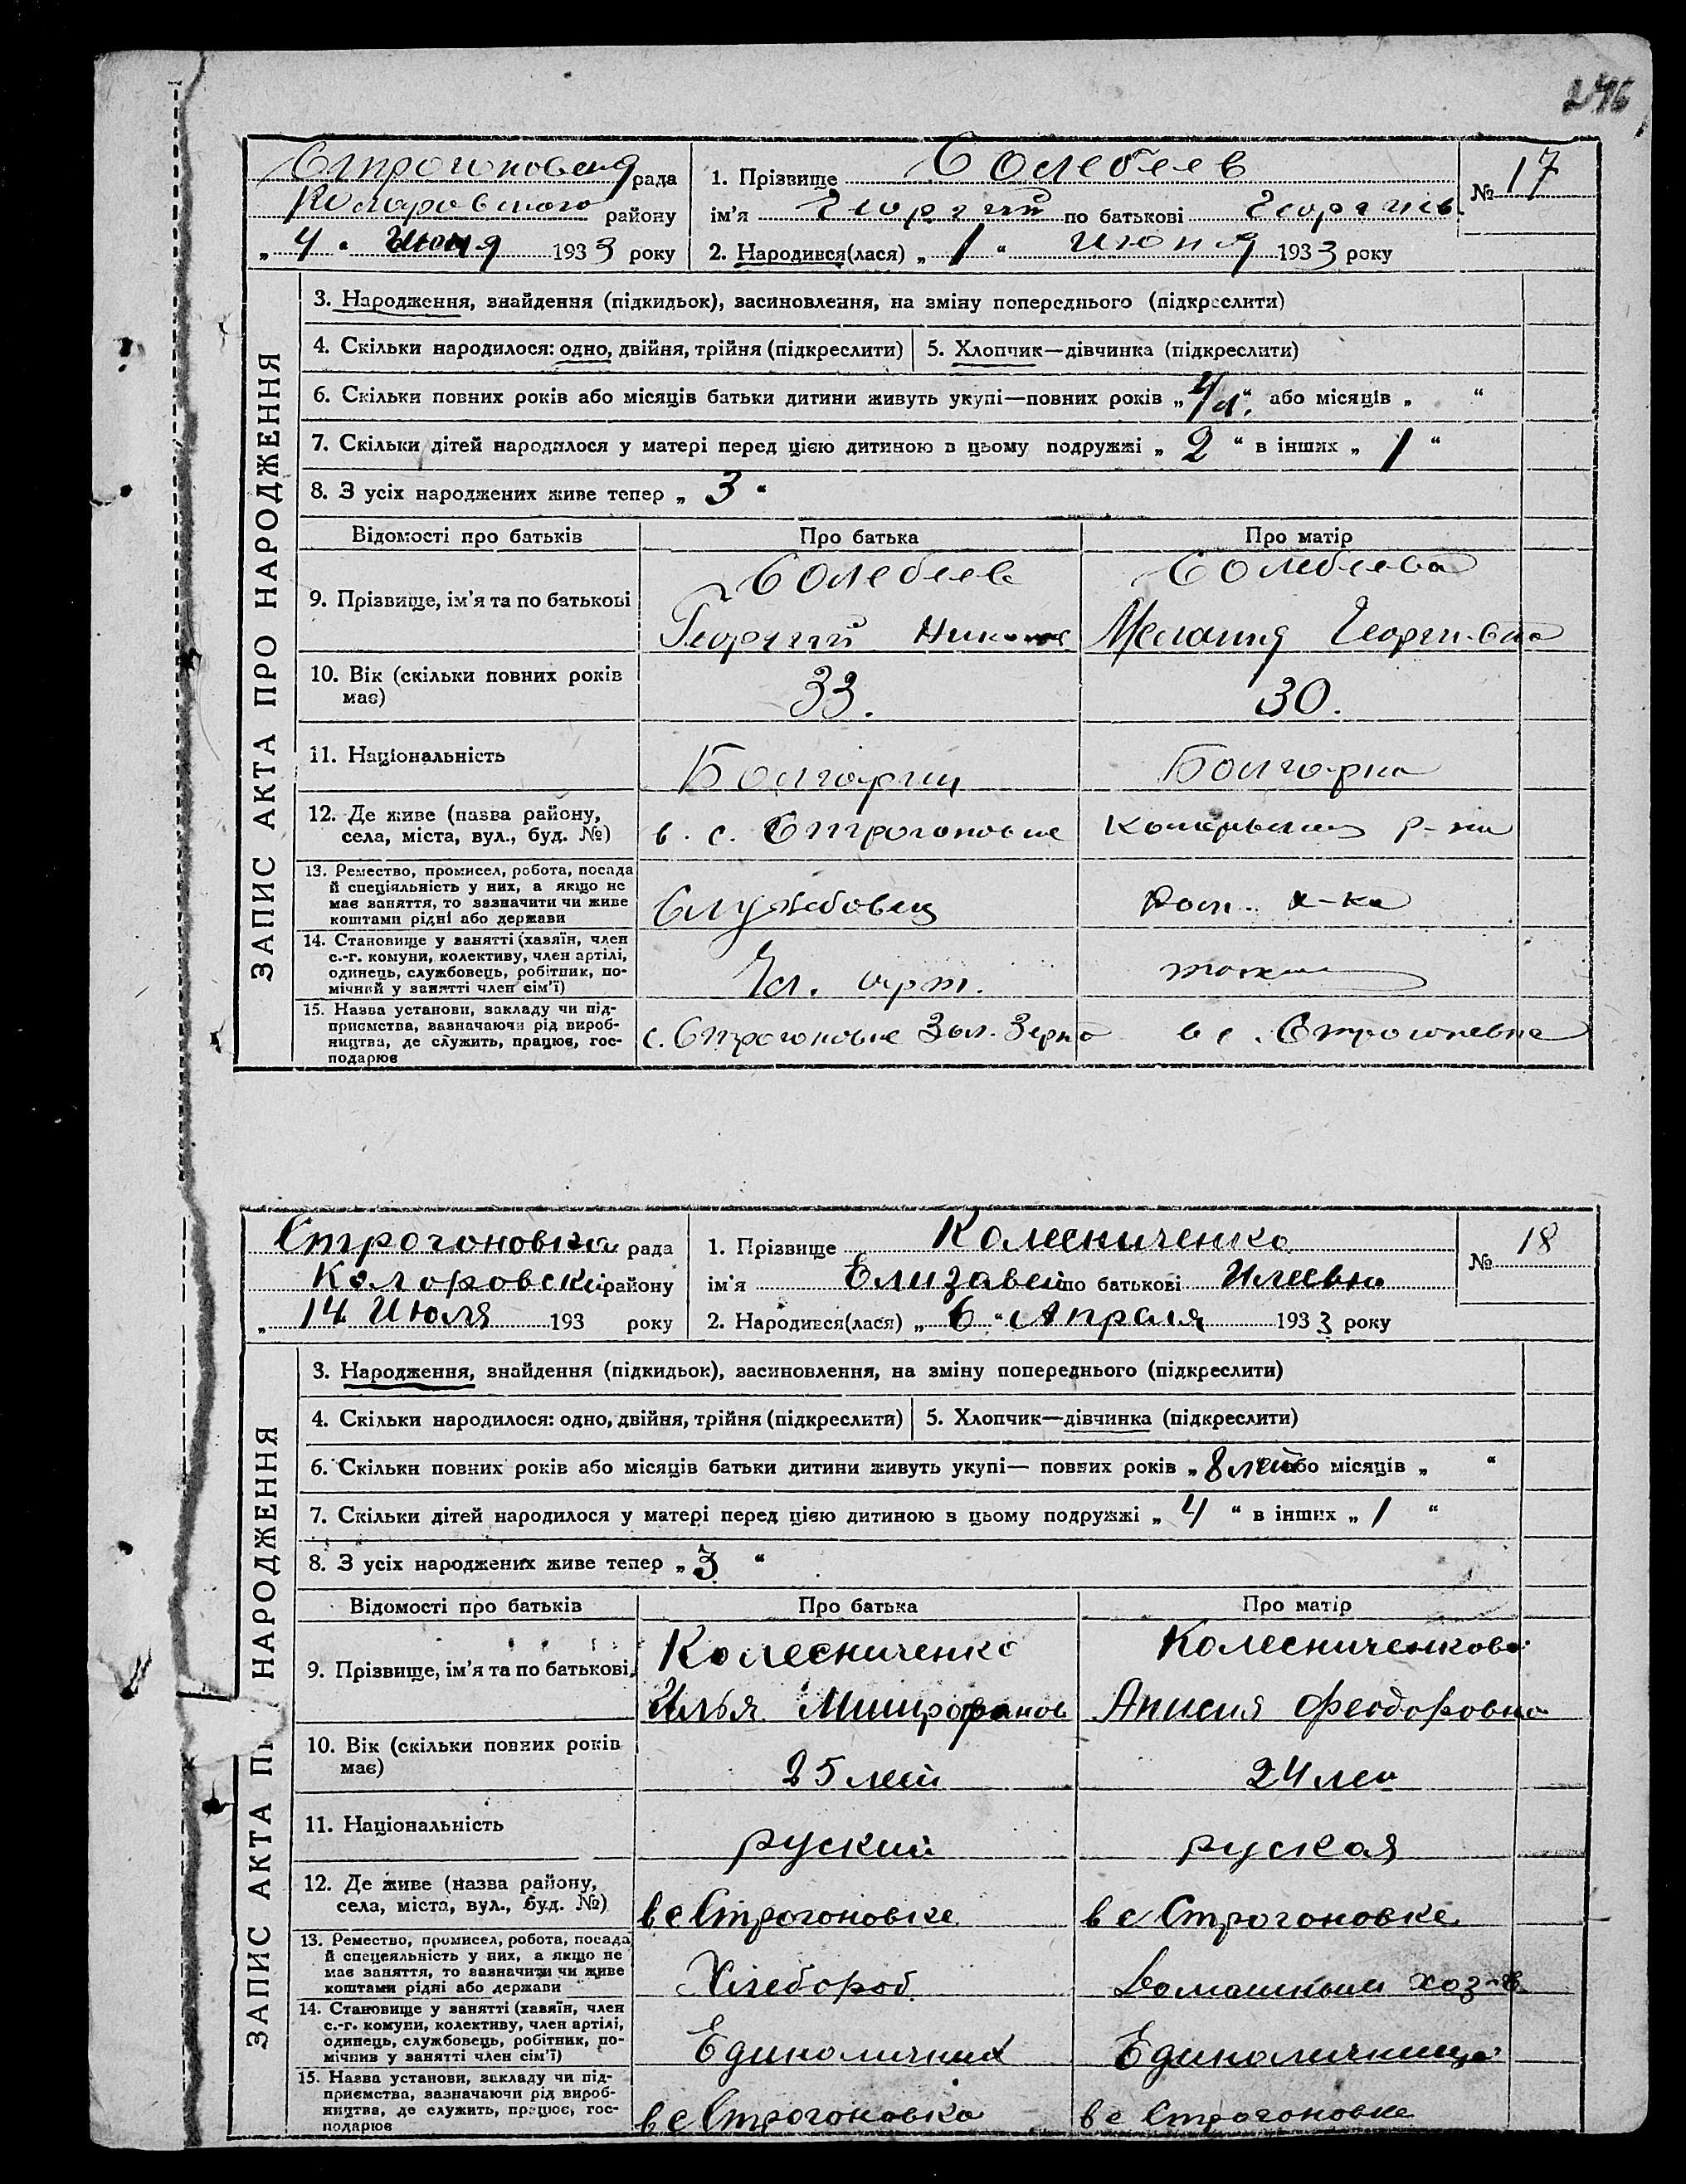 246
Строгоновская рада
Коларовского району
„ 4 “ Июня 1933 року
1. Прізвище Солебеев
ім'я Георгий по батькові Георгиев.
2. Народився(лася) „ 1 “ июня 1933 року
№ 17
ЗАПИС АКТА ПРО НАРОДЖЕННЯ
3. Народження, знайдення (підкидьок), засиновлення, на зміну попереднього (підкреслити)
4. Скільки народилося: одно, двійня, трійня (підкреслити) 5. Хлопчик—дівчинка (підкреслити)
6. Скільки повних років або місяців батьки дитини живуть укупі—повних років „ 4/л “, або місяців „ “
7. Скільки дітей народилося у матері перед цією дитиною в цьому подружжі „ 2 “ в інших „ 1 “
8. З усіх народжених живе тепер „ 3 “
Відомості про батьків Про батька Про матір
9. Прізвище, ім'я та по батькові
Солебеев Солебеева
Георгий Мелания Георгиевна
10. Вік (скільки повних років
має)
33. 30.
11. Національність
Болгарин Болгарка
12. Де живе (назва району,
села, міста, вул., буд. №)
в. с. Строгоновке р-на
13. Ремество, промисел, робота, посада
й спеціяльність у них, а якщо не
має заняття, то зазначити чи живе
коштами рідні або держави
Службовец х-ка
14. Становище у занятті (хазяїн, член
с.-г. комуни, колективу, член артілі,
одинець, службовець, робітник, по-
мічний у занятті член сім'ї)
Чл. арт. тоже
15. Назва установи, закладу чи під-
приємства, зазначаючи рід вироб-
ництва, де служить, працює, гос-
подарює
с. Строгоновке Зол. Зерно в с. Строгоневке
Строгоновка рада
Коларовский району
„ 14 Июля 193 року
1. Прізвище Колесниченко
ім'я Елизавет по батькові Илевна
2. Народився(лася) „ 6 “ Апраля 1933 року
№ 18
ЗАПИС АКТА ПР НАРОДЖЕННЯ
3. Народження, знайдення (підкидьок), засиновлення, на зміну попереднього (підкреслити)
4. Скільки народилося: одно, двійня, трійня (підкреслити) 5. Хлопчик—дівчинка (підкреслити)
6. Скільки повних років або місяців батьки дитини живуть укупі— повних років „ 8 лет або місяців „ “
7. Скільки дітей народилося у матері перед цією дитиною в цьому подружжі „ 4 “ в інших „ 1 “
8. З усіх народжених живе тепер „ 3 “
Відомості про батьків Про батька Про матір
9. Прізвище, ім'я та по батькові
Колесниченко Колесниченкова
Илья Митрофанов Анисия Феодоровна
10. Вік (скільки повних років
має)
25 лет 24 лет
11. Національність
руский руская
12. Де живе (назва району,
села, міста, вул., буд. №)
в с Строгоновке в с Строгоновке
13. Ремество, промисел, робота, посада
й спецеяльність у них, а якщо не
має заняття, то зазначити чи живе
коштами рідні або держави
Хлебороб Домашным хоз-в
14. Становище у занятті (хазяїн, член
с.-г. комуни, колективу, член артілі,
одинець, службовець, робітник, по-
мічнив у занятті член сім'ї)
Единоличник Единоличница
15. Назва установи, закладу чи під-
приємства, зазначаючи рід вироб-
ництва, де служить, працює, гос-
подарює
в с Строгоновка в с Строгоновке